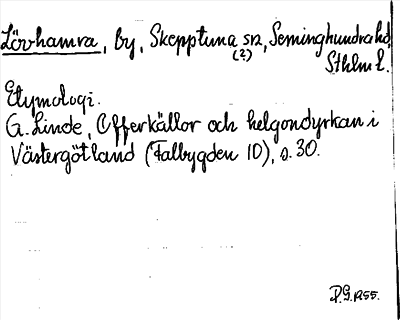 Lövhamra, by, Skepptuna sn, Seminghundra hd,
(2)
Sthlm l.
Etymologi.
G. Linde, Offerkällor och helgondyrkan i
Västergötland (Falbygden 10), s. 30.
P.G. 1255.